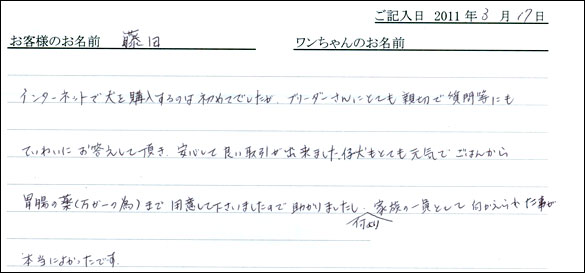 ご記入日 2011年3月17日
お客様のお名前 藤田 ワンちゃんのお名前
インターネットで犬を購入するのは初めてでしたが、ブリーダーさんにとても親切で質問等にも
ていねいにお答えして頂き、安心して良い取引が出来ました。仔犬もとても元気でごはんから
胃腸の薬(万が一の為)まで用意して下さいましたので助かりましたし、家族の一員として迎えられた事が
何より
本当によかったです。